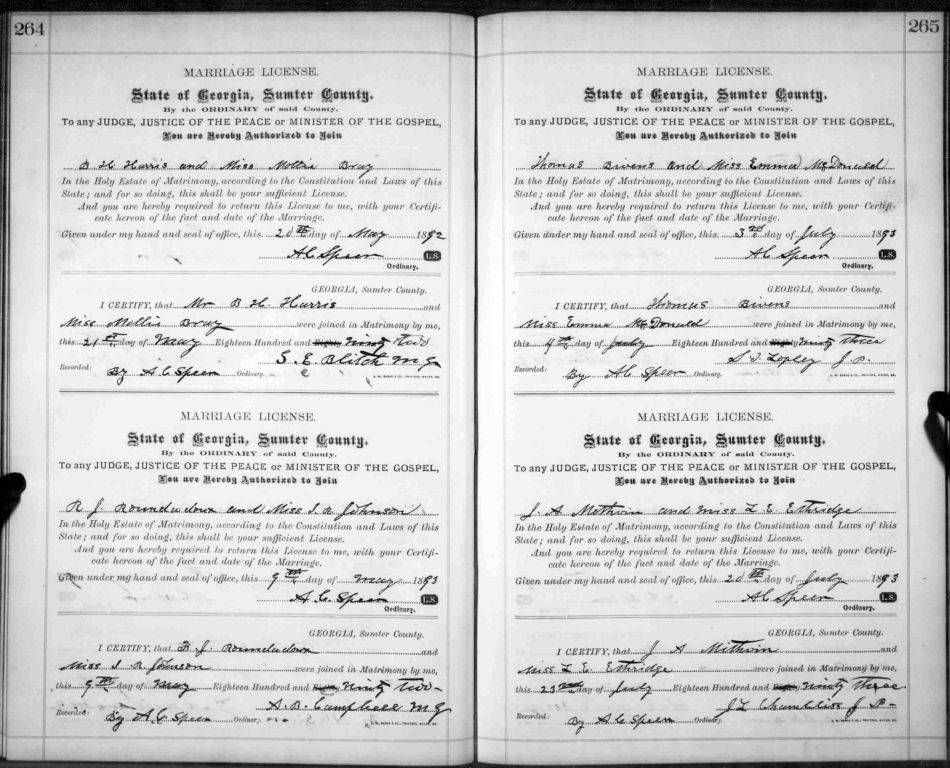 264
MARRIAGE LICENSE.
State of Georgia, Sumter County.
By the ORDINARY of said County.
To any JUDGE, JUSTICE OF THE PEACE or MINISTER OF THE GOSPEL,
You are Hereby Authorized to Join
B H Harris and Miss Mollie Bray
In the Holy Estate of Matrimony, according to the Constitution and Laws of this
State; and for so doing, this shall be your sufficient License.
And you are hereby required to return this License to me, with your Certifi-
cate hereon of the fact and date of the Marriage.
Given under my hand and seal of office, this 20th day of May 1892
A C Speer L.S.
Ordinary.
GEORGIA, Sumter County.
I CERTIFY, that Mr B. H. Harris and
Miss Mollie Bray were joined in Matrimony by me,
this 21st day of May Eighteen Hundred and Eighty Ninty two
S. E. Blitch M. G.
Recorded: By A C Speer Ordinary.
MARRIAGE LICENSE.
State of Georgia, Sumter County.
By the ORDINARY of said County.
To any JUDGE, JUSTICE OF THE PEACE or MINISTER OF THE GOSPEL,
You are Hereby Authorized to Join
R. J. and Miss R Johnson
In the Holy Estate of Matrimony, according to the Constitution and Laws of this
State; and for so doing, this shall be your sufficient License.
And you are hereby required to return this License to me, with your Certifi-
cate hereon of the fact and date of the Marriage.
Given under my hand and seal of office, this 9th day of May 1893
A. C. Speer L.S.
Ordinary.
GEORGIA, Sumter County.
I CERTIFY, that J. and
Miss R. Johnson were joined in Matrimony by me,
this 9th day of May Eighteen Hundred and Eighty Ninty two
A. B. Campbell M G
Recorded: By A. C. Speer Ordinary.
265
MARRIAGE LICENSE.
State of Georgia, Sumter County.
By the ORDINARY of said County.
To any JUDGE, JUSTICE OF THE PEACE or MINISTER OF THE GOSPEL,
You are Hereby Authorized to Join
Thomas Bivens and Miss Emma McDonald
In the Holy Estate of Matrimony, according to the Constitution and Laws of this
State; and for so doing, this shall be your sufficient License.
And you are hereby required to return this License to me, with your Certifi-
cate hereon of the fact and date of the Marriage.
Given under my hand and seal of office, this 3rd day of July 1893
A C Speer L.S.
Ordinary.
GEORGIA, Sumter County.
I CERTIFY, that Thomas Bivens and
Miss Emma McDonald were joined in Matrimony by me,
this 4th day of July Eighteen Hundred and Eighty Ninty three
J. P.
Recorded: By A C Speer Ordinary.
MARRIAGE LICENSE.
State of Georgia, Sumter County.
By the ORDINARY of said County.
To any JUDGE, JUSTICE OF THE PEACE or MINISTER OF THE GOSPEL,
You are Hereby Authorized to Join
J. A Methvin and Miss L E. Ethridge
In the Holy Estate of Matrimony, according to the Constitution and Laws of this
State; and for so doing, this shall be your sufficient License.
And you are hereby required to return this License to me, with your Certifi-
cate hereon of the fact and date of the Marriage.
Given under my hand and seal of office, this 20th day of July 1893
A C Speer L.S.
Ordinary.
GEORGIA, Sumter County.
I CERTIFY, that J A Methvin and
Miss L E. Ethridge were joined in Matrimony by me,
this day of July Eighteen Hundred and Eighty Ninty three
J L Chambliss J P
Recorded: By A C Speer Ordinary.